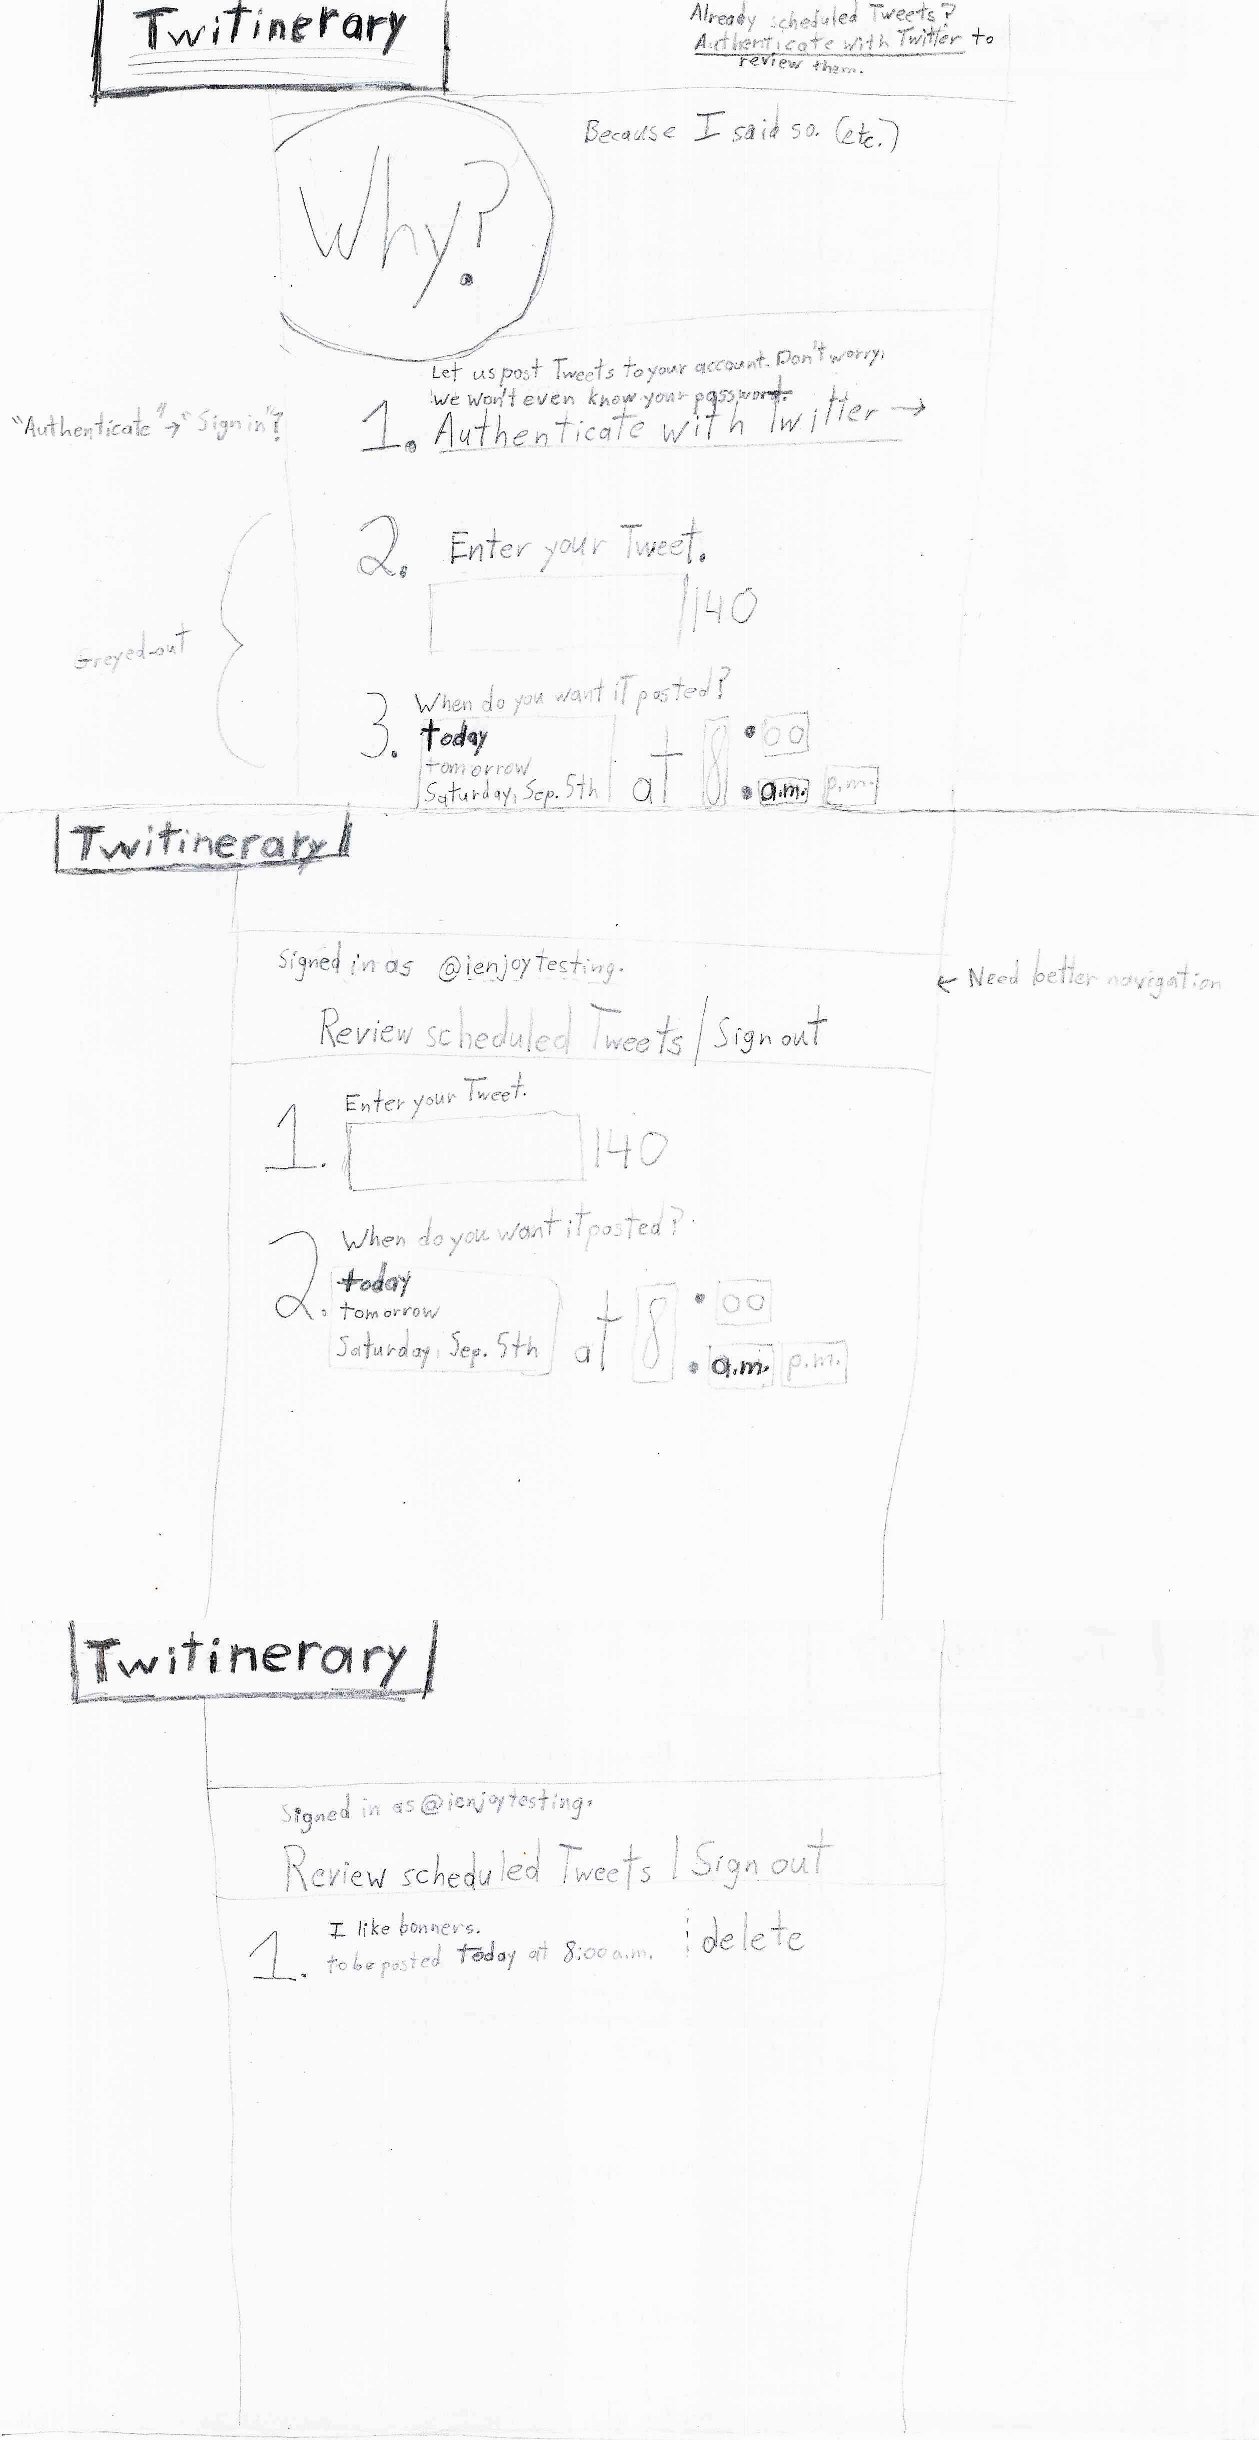 Twitinerary
Already scheduled Tweets?
Authenticate with Twitter to
review them.
Why?
Because I said so. (etc.)
Let us post Tweets to your account. Don't worry,
we won't even know your password.
"Authenticate" → "Sign in"?
1. Authenticate with Twitter →
2. Enter your Tweet.
140
Greyed-out
3. When do you want it posted?
today
tomorrow
Saturday, Sep. 5th
at 8 : 00
a.m. p.m.
Twitinerary
Signed in as @ienjoytesting.
← Need better navigation
Review scheduled Tweets / Sign out
1. Enter your Tweet.
140
2. When do you want it posted?
today
tomorrow
Saturday, Sep. 5th
at 8 : 00
a.m. p.m.
Twitinerary
Signed in as @ienjoytesting.
Review scheduled Tweets | Sign out
1. I like bonners.
to be posted today at 8:00 a.m.
delete